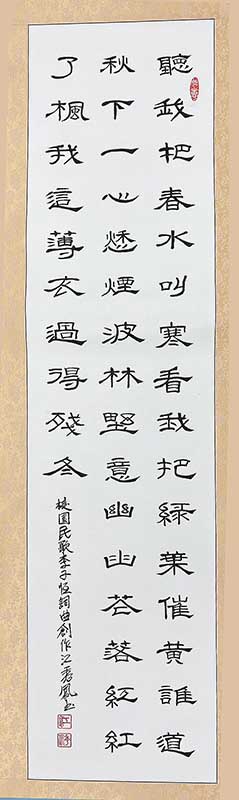 聽我把春水叫寒看我把綠葉催黃誰道
秋下一心愁煙波林野意幽幽花落紅紅
了楓我這薄衣過得殘冬
校園民歌李子恆詞曲創作江鳳書